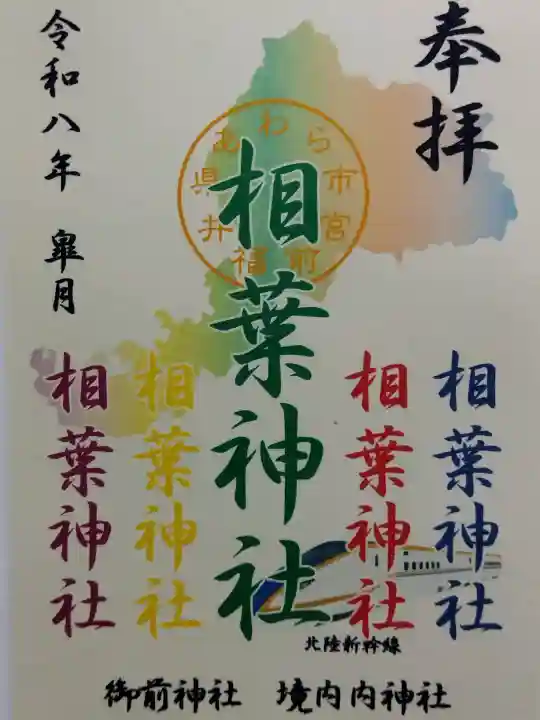 奉拝
相葉神社
相葉神社
相葉神社
相葉神社
相葉神社
令和八年 皐月
あわら市宮前福井県
北陸新幹線
御前神社 境内内神社